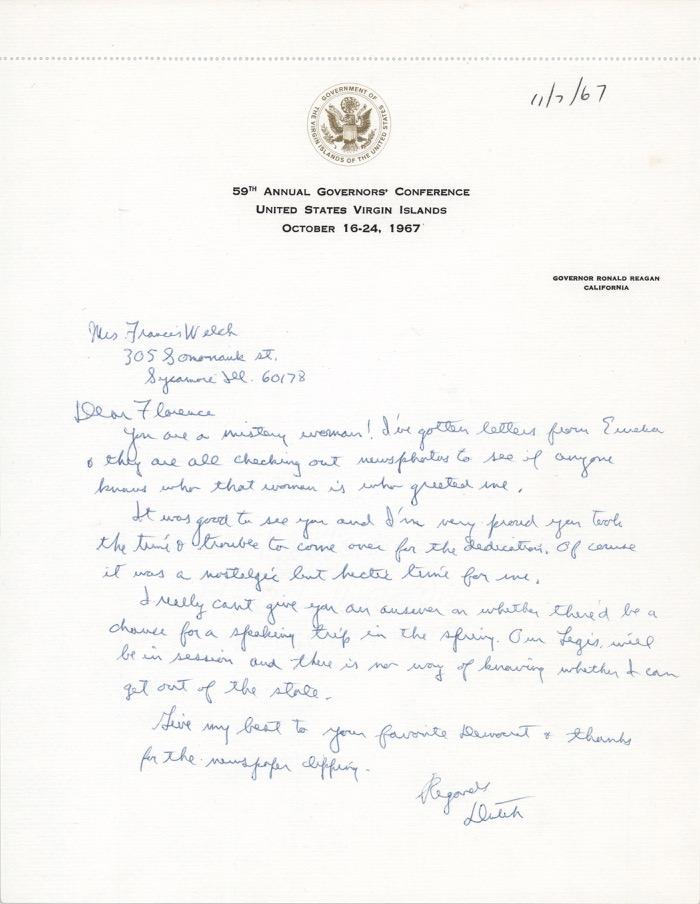 11/7/67
GOVERNMENT OF
THE VIRGIN ISLANDS OF THE UNITED STATES
59TH ANNUAL GOVERNORS' CONFERENCE
UNITED STATES VIRGIN ISLANDS
OCTOBER 16-24, 1967
GOVERNOR RONALD REAGAN
CALIFORNIA
Mrs. Francis Welch
305 Somonauk st.
Sycamore Ill. 60178
Dear Florence
You are a mistery woman! I've gotten letters from Eureka
& they are all checking out newsphotos to see if anyone
knows who that woman is who greeted me.
It was good to see you and I'm very proud you took
the time & trouble to come over for the dedication. Of course
it was a nostalgic but hectic time for me.
I really can't give you an answer on whether there'd be a
chance for a speaking trip in the spring. Our Legis. will
be in session and there is no way of knowing whether I can
get out of the state.
Give my best to your favorite Democrat & thanks
for the newspaper clipping.
Regards
Dutch